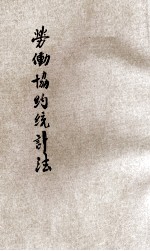 勞働協約統計法